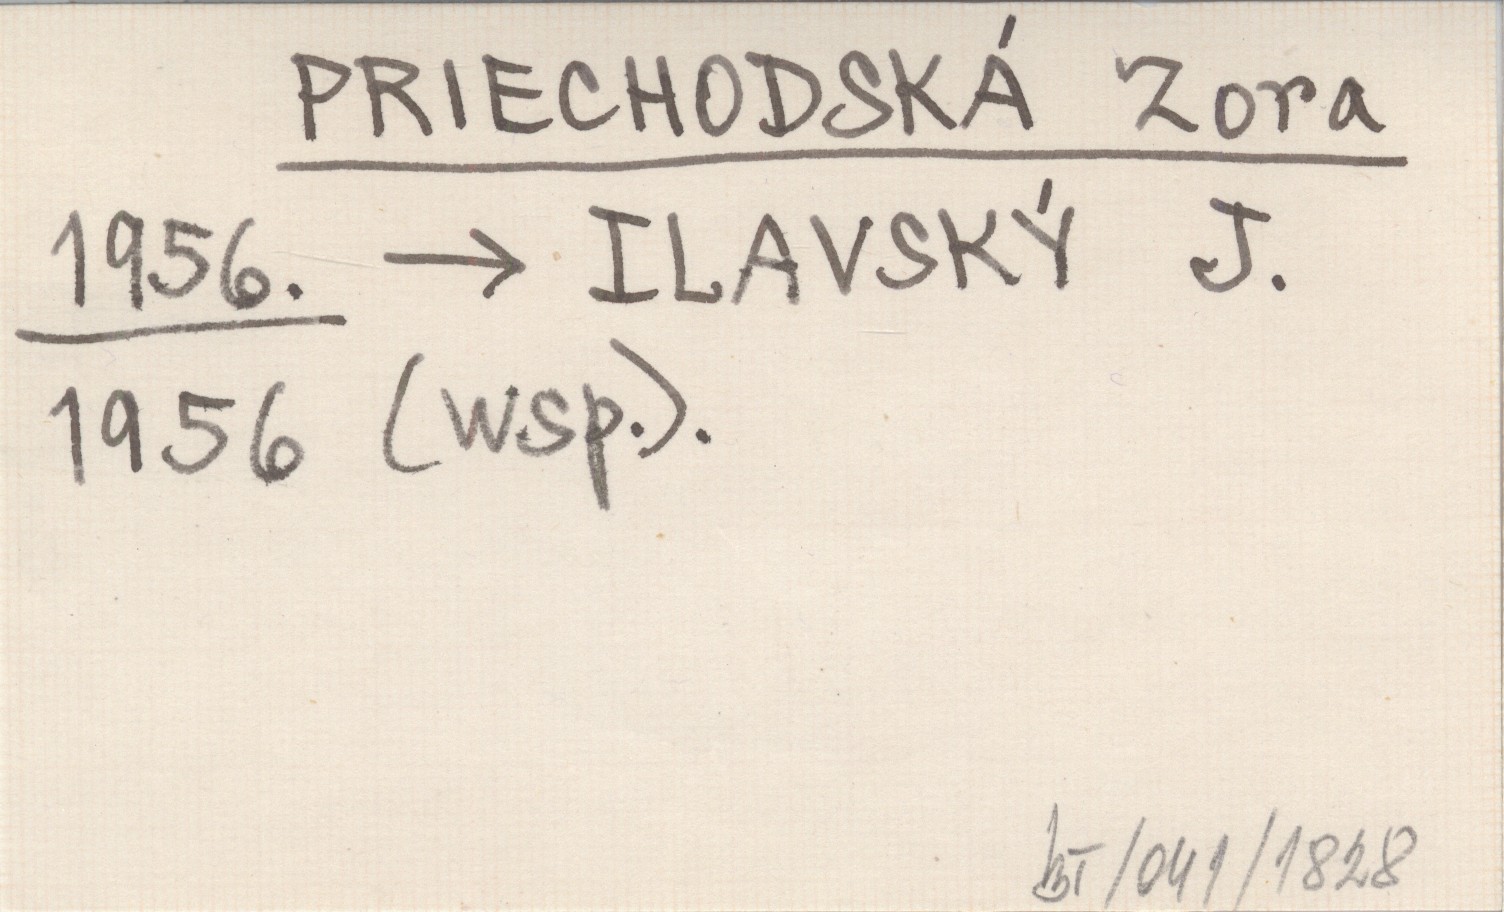 PRIECHODSKÁ Zora
1956. → ILAVSKÝ J.
1956 (wsp.).
BT/041/1828